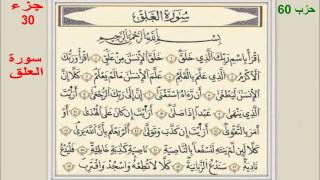 حزب 60
جزء
30
سورة
العلق
سورة العلق
بسم الله الرحمن الرحيم
اقرأ باسم ربك الذي خلق ١ خلق الإنسن من علق ٢ اقرأ وربك
الأكرم ٣ الذي علم بالقلم ٤ علم الإنسن ما لم يعلم ٥ كلا إن
الإنسن ليطغى ٦ أن رءاه استغنى ٧ إن إلى ربك الرجعى ٨ أرءيت
الذي ينهى ٩ عبدا إذا صلى ١٠ أرءيت إن كان على الهدى ١١ أو
أمر بالتقوى ١٢ أرءيت إن كذب وتولى ١٣ ألم يعلم بأن الله يرى ١٤
كلا لئن لم ينته لنسفعا بالناصية ١٥ ناصية كذبة خاطئة ١٦ فليدع
ناديه ١٧ سندع الزبانية ١٨ كلا لا تطعه واسجد واقترب ۩ ١٩